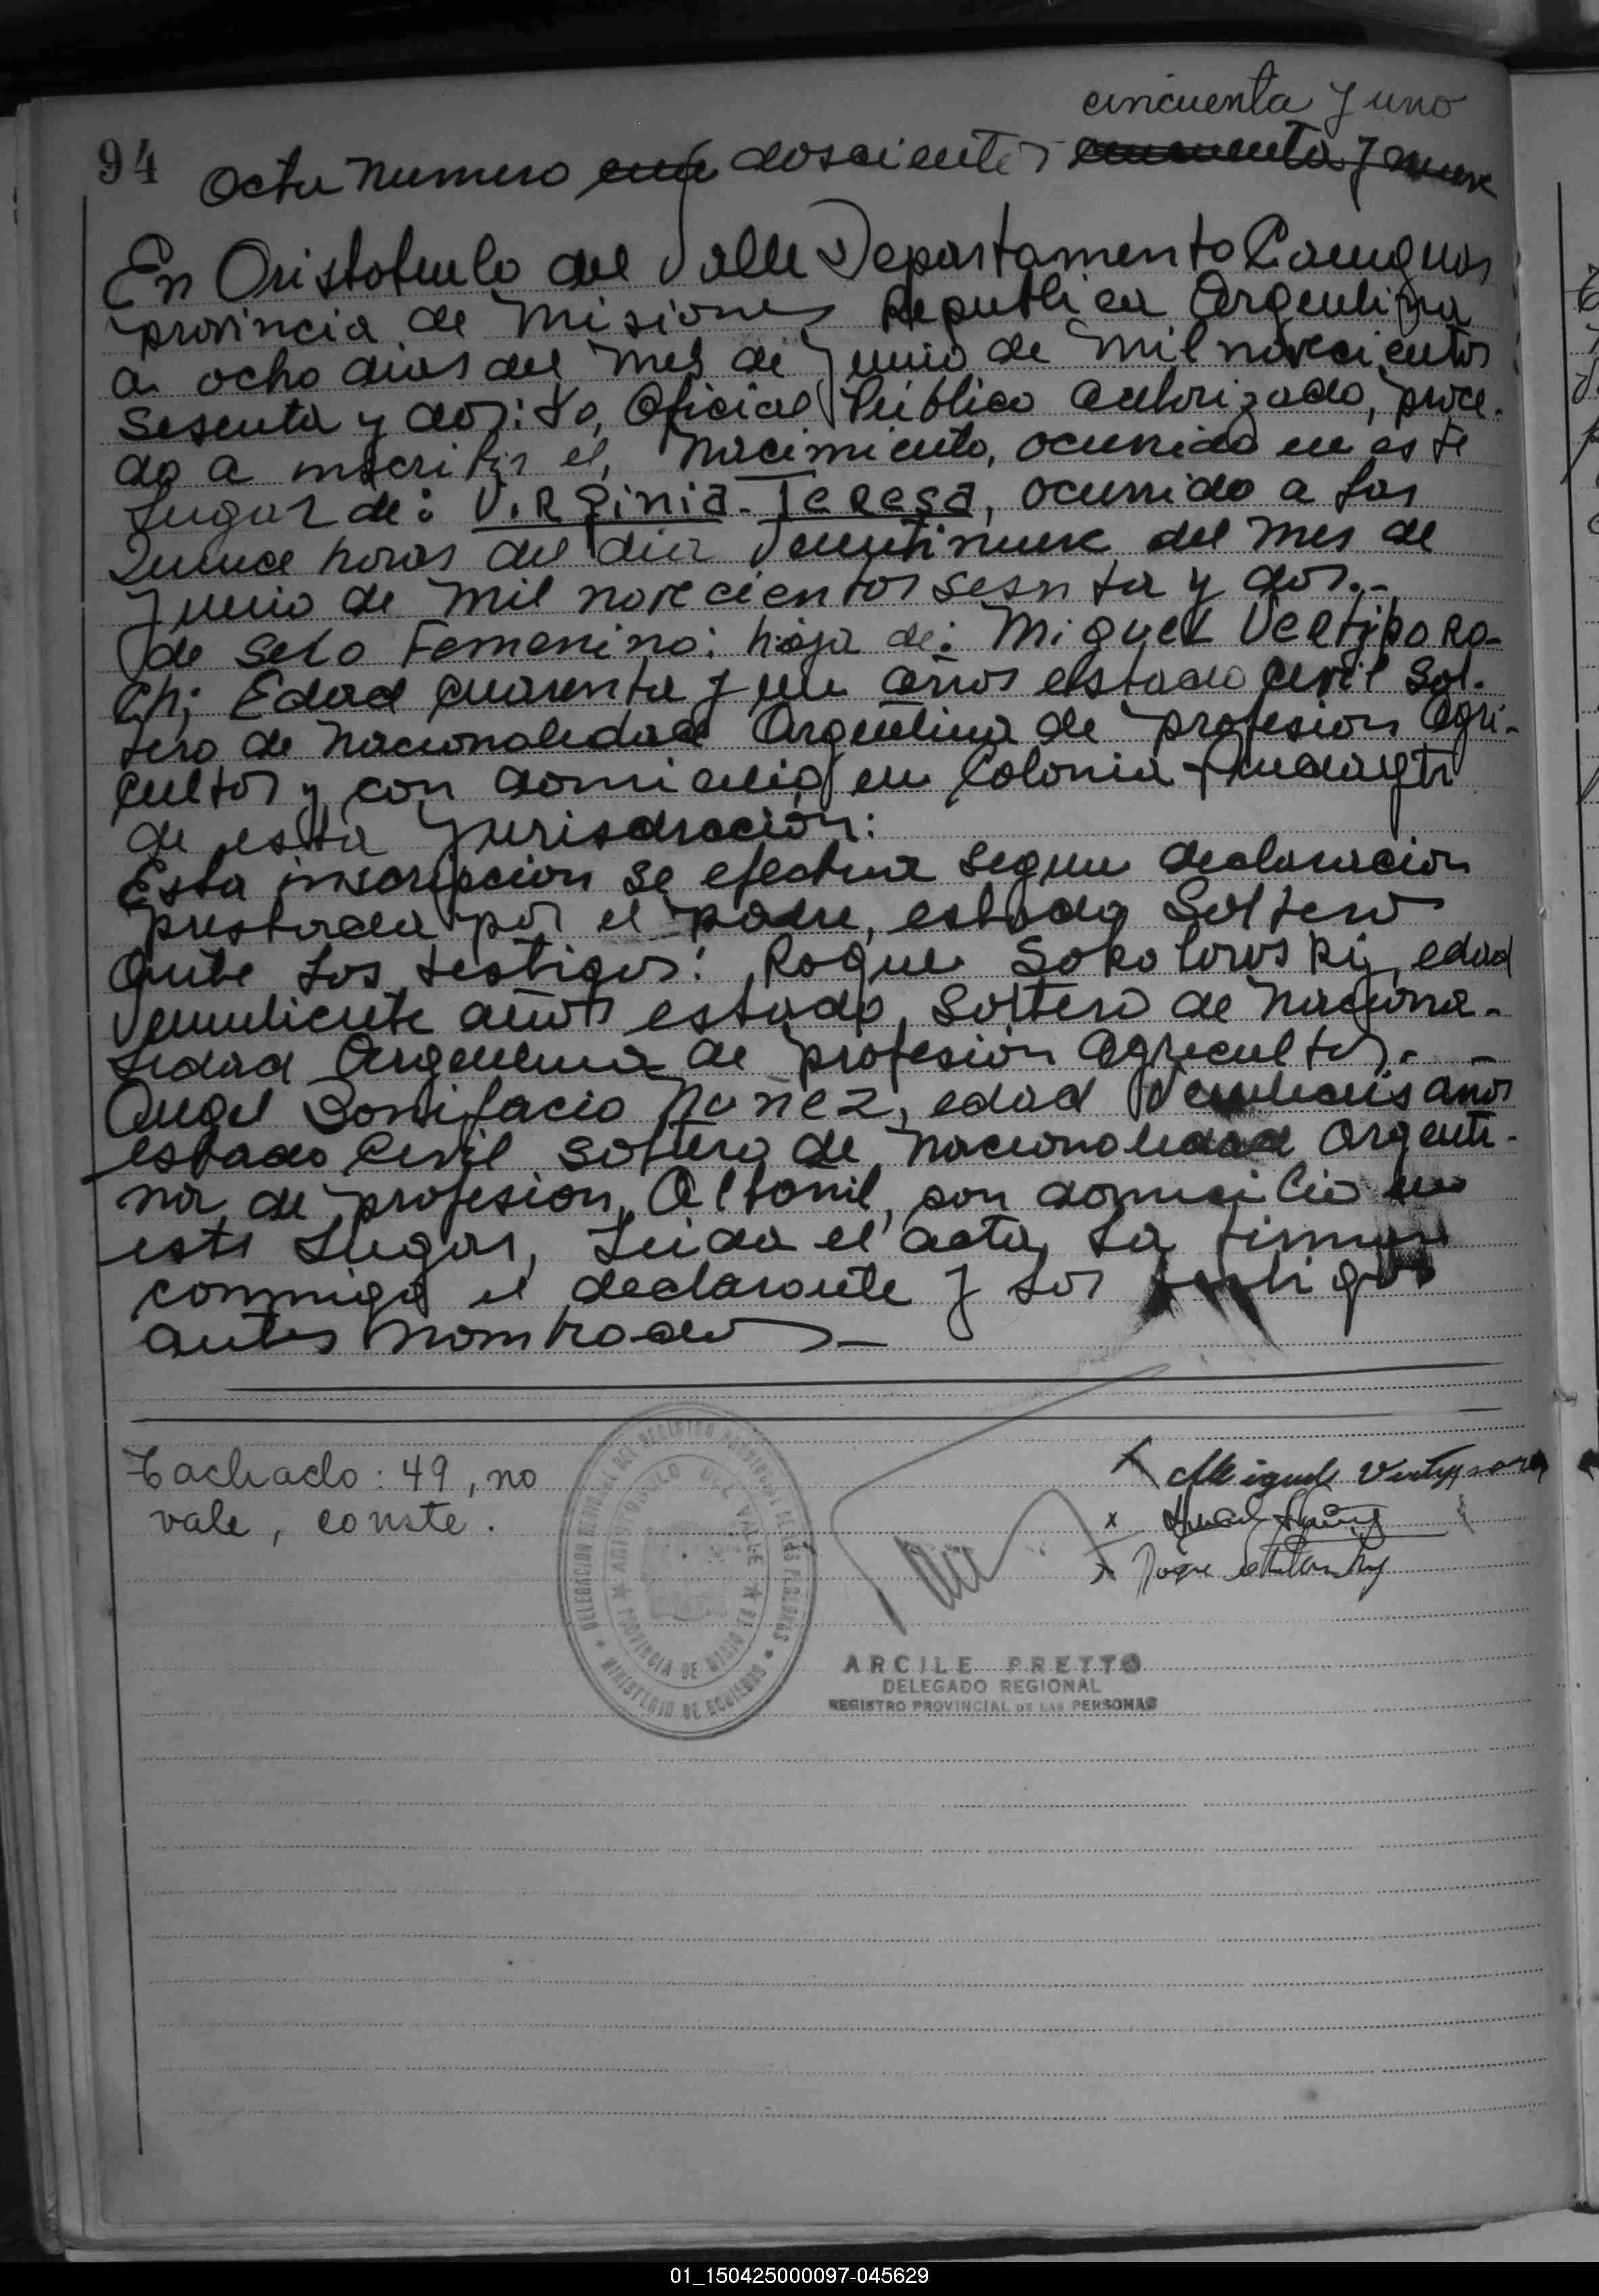 cincuenta y uno
94 Acta numero doscientos cincuenta y nueve
En Aristobulo del Valle Departamento Cainguas
provincia de Misiones Republica Argentina
a ocho dias del mes de Junio de mil novecientos
sesenta y dos: Yo, Oficial Público Autorizado, proce-
do a inscribir el, Nacimiento, ocurrido en este
Lugar de: VIRginia-TeResa, ocurrido a las
Quince horas del dia Veintinueve del mes de
Junio de mil novecientos sesnta y dos.-
de sexo Femenino: hija de: Miguel Vertiporo-
ch; Edad cuarenta y un años estado civil Sol-
tero de nacionalidad Argentina de profesion Agri-
cultor y con domicilio en Colonia
de esta Jurisdiccion:
Esta inscripcion se efectua segun declaracion
prestada por el padre, estado Soltero
Ante los testigos: Roque Sokolowski, edad
años estado, Soltero de Naciona-
lidad Argentina de profesion Agricultor. -
Angel Bonifacio Nuñez, edad Veintiseis años
estado Civil soltero de nacionalidad Argenti-
na de profesion, Albañil, con domicilio en
este Lugar, Leida el acta, la firman
conmigo el declarante y los testigos
antes nombrados -
Tachado: 49, no
vale, conste.
DELEGACION REGIONAL DEL REGISTRO PROVINCIAL DE LAS PERSONAS
★ ARISTOBULO DEL VALLE ★
PROVINCIA DE MISIONES
★ MINISTERIO DE GOBIERNO ★
x Miguel
x
x Roque
ARCILE PRETTO
DELEGADO REGIONAL
REGISTRO PROVINCIAL DE LAS PERSONAS
01_150425000097-045629